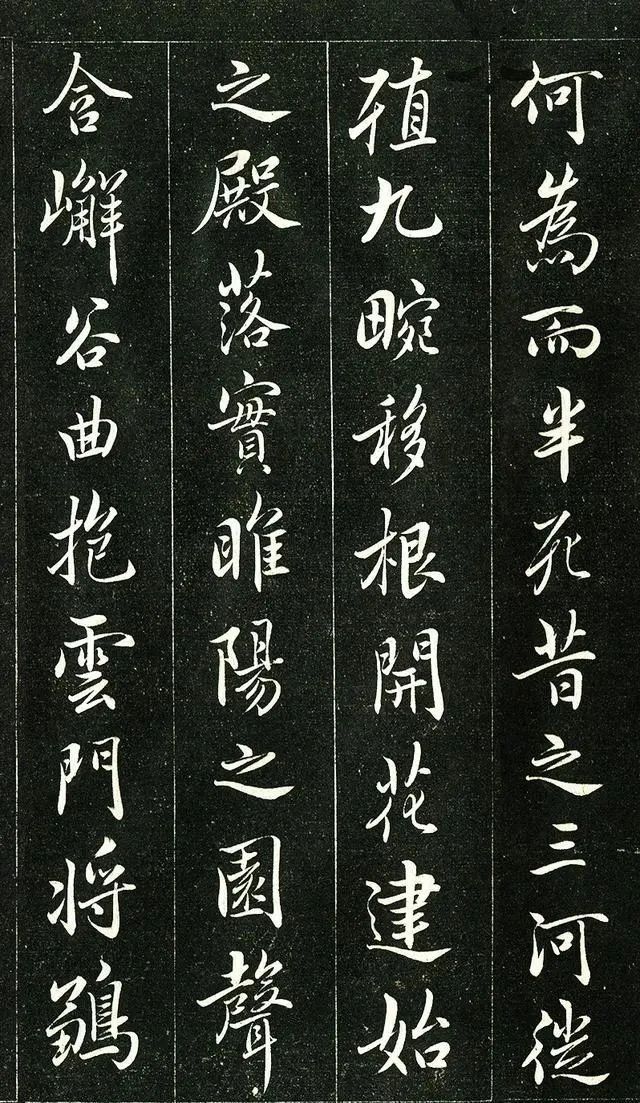 何為而半死昔之三河徙
殖九畹移根開花建始
之殿落實睢陽之園聲
含嶰谷曲抱雲門將鶵